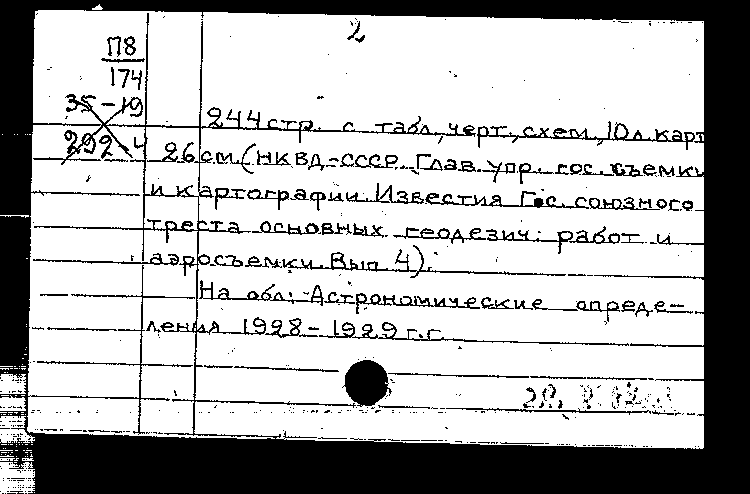 2
П8
174
35-19
292-4
244 стр. с табл., черт., схем., 10 л. карт
26 см. (НКВД-СССР. Глав. упр. гос. съемки
и картографии. Известия Гос. союзного
треста основных геодезич. работ и
аэросъемки. Вып. 4).
На обл.: Астрономические опреде-
ления 1928-1929 г.г.